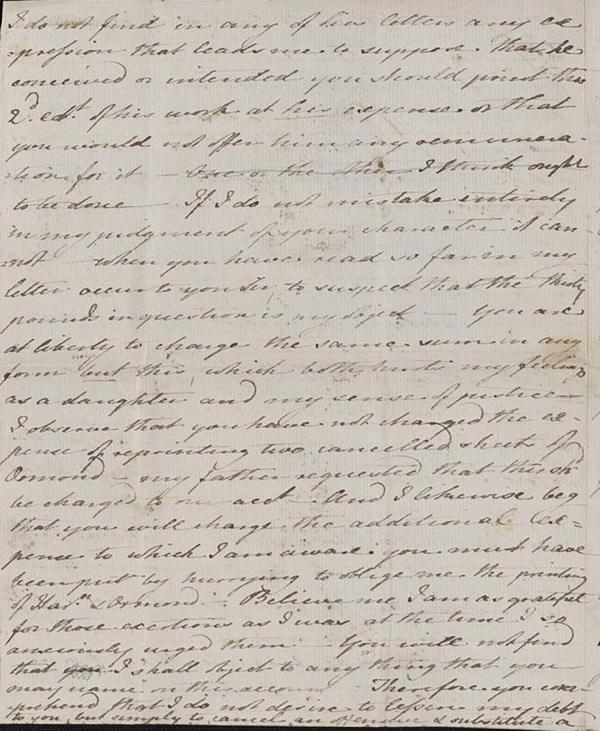 I do not find in any of his letters any ex-
-pression that leads me to suppose that he
conceived or intended you should print this
2d. edit. of his work at his expense or that
you would not offer him any remunera-
-tion for it — One or the other I think ought
to be done — If I do not mistake entirely
in my judgment of your character it can
-not — when you have read so far in my
letter occur to you Sir, to suspect that the thirty
pounds in question is my object — You are
at liberty to charge the same sum in any
form but this, which both hurts my feelings
as a daughter and my sense of justice —
I observe that you have not charged the ex-
-pense of reprinting two cancelled sheets of
Ormond — my father requested that this shd.
be charged to our acct — And I likewise beg
that you will charge the additional ex-
-pence to which I am aware you must have
been put by hurrying to oblige me the printing
of Harn. & Ormond — Believe me I am as grateful
for those exertions as I was at the time I so
anxiously urged them — You will not find
that I shall object to any thing that you
may name on this account — Therefore you com-
-prehend that I do not desire to lessen my debt
to you, but simply to cancel an & substitute a